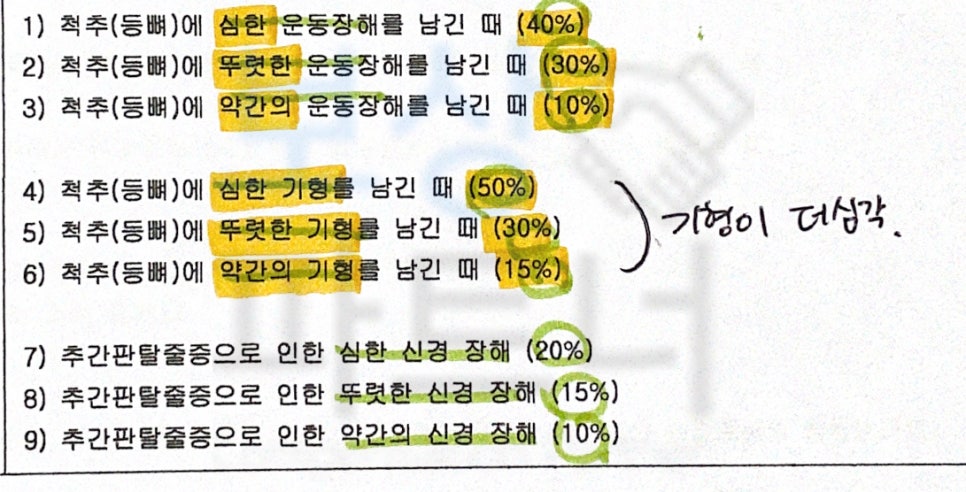 1) 척추(등뼈)에 심한 운동장해를 남긴 때 (40%)
2) 척추(등뼈)에 뚜렷한 운동장해를 남긴 때 (30%)
3) 척추(등뼈)에 약간의 운동장해를 남긴 때 (10%)
4) 척추(등뼈)에 심한 기형를 남긴 때 (50%)
5) 척추(등뼈)에 뚜렷한 기형를 남긴 때 (30%)
6) 척추(등뼈)에 약간의 기형를 남긴 때 (15%)
기형이 더심각.
7) 추간판탈출증으로 인한 심한 신경 장해 (20%)
8) 추간판탈출증으로 인한 뚜렷한 신경 장해 (15%)
9) 추간판탈출증으로 인한 약간의 신경 장해 (10%)